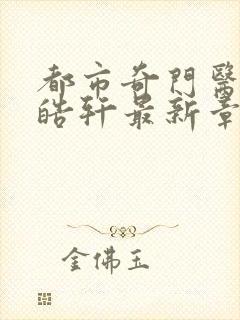 都市奇門醫
皓軒最新章
金佛玉